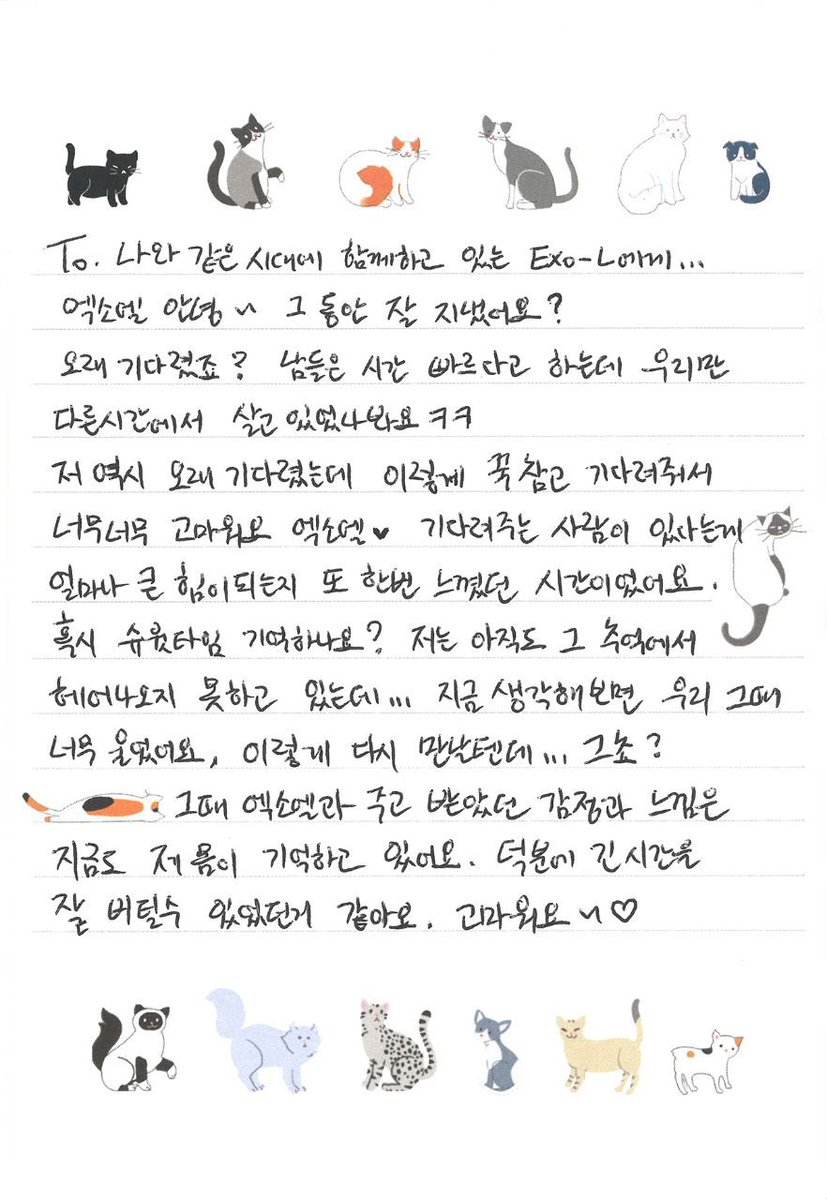 To. 나와 같은 시대에 함께하고 있는 Exo-L에게...
엑소엘 안녕~ 그동안 잘 지냈어요?
오래 기다렸죠? 남들은 시간 빠르다고 하는데 우리만
다른시간에서 살고 있었나봐요 ㅋㅋ
저 역시 오래 기다렸는데 이렇게 꾹 참고 기다려줘서
너무너무 고마워요 엑소엘♥ 기다려주는 사람이 있다는게
얼마나 큰 힘이되는지 또 한번 느꼈던 시간이었어요.
혹시 슈웟타임 기억하나요? 저는 아직도 그 추억에서
헤어나오지 못하고 있는데... 지금 생각해보면 우리 그때
너무 울었어요, 이렇게 다시 만날텐데... 그쵸?
그때 엑소엘과 주고 받았던 감정과 느낌은
지금도 제 몸이 기억하고 있어요. 덕분에 긴 시간을
잘 버틸수 있었던거 같아요. 고마워요~♡